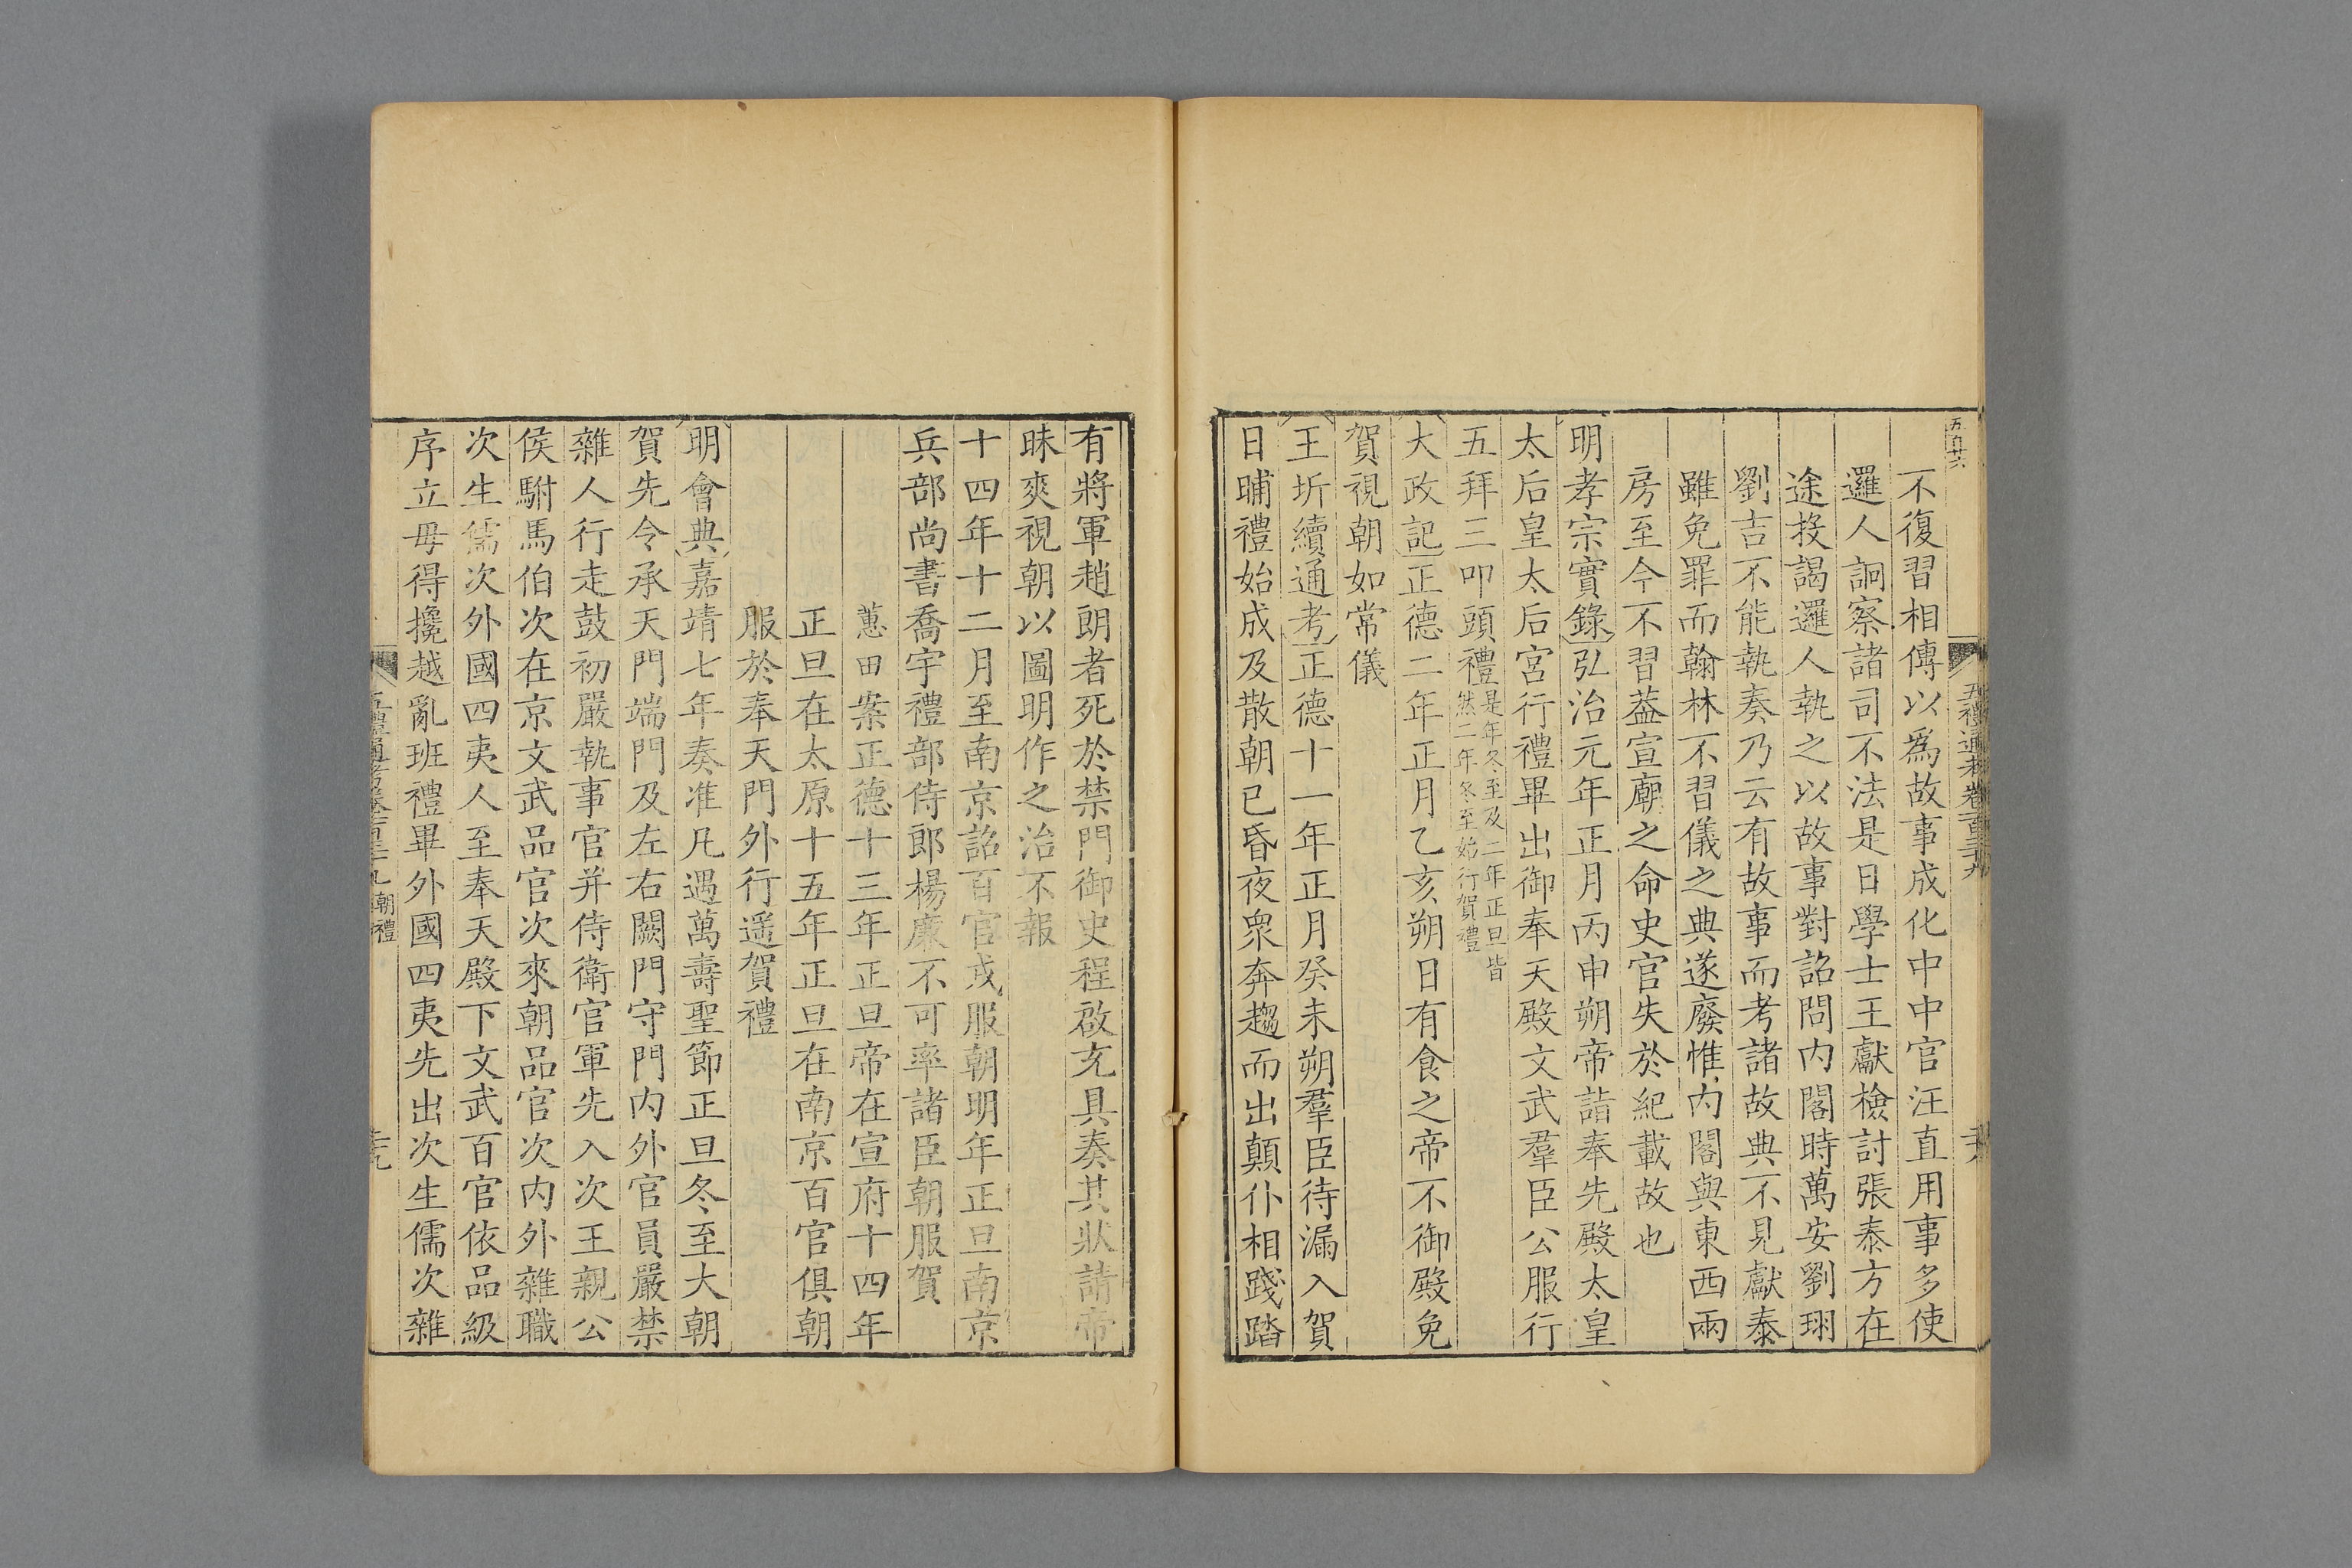 五百廿六
五禮通考卷一百三十九
不復習相傳以爲故事成化中中官汪直用事多使
邏人詗察諸司不法是日學士王獻檢討張泰方在
途投謁邏人執之以故事對詔問内閣時萬安劉珝
劉吉不能執奏乃云有故事而考諸故典不見獻泰
雖免罪而翰林不習儀之典遂廢惟内閣與東西兩
房至今不習蓋宣廟之命史官失於紀載故也
明孝宗實錄弘治元年正月丙申朔帝詣奉先殿太皇
太后皇太后宮行禮畢出御奉天殿文武羣臣公服行
五拜三叩頭禮是年冬至及二年正旦皆然二年冬至始行賀禮
大政記正德二年正月乙亥朔日有食之帝不御殿免
賀視朝如常儀
王圻續通考正德十一年正月癸未朔羣臣待漏入賀
日晡禮始成及散朝已昏夜衆奔趨而出顛仆相踐踏
有將軍趙朗者死於禁門御史程啟充具奏其狀請帝
昧爽視朝以圖明作之治不報
十四年十二月至南京詔百官戎服朝明年正旦南京
兵部尚書喬宇禮部侍郎楊廉不可率諸臣朝服賀
蕙田案正德十三年正旦帝在宣府十四年
正旦在太原十五年正旦在南京百官俱朝
服於奉天門外行遥賀禮
明會典嘉靖七年奏准凡遇萬壽聖節正旦冬至大朝
賀先令承天門端門及左右闕門守門内外官員嚴禁
雜人行走鼓初嚴執事官并侍衛官軍先入次王親公
侯駙馬伯次在京文武品官次來朝品官次内外雜職
次生儒次外國四夷人至奉天殿下文武百官依品級
序立毋得攙越亂班禮畢外國四夷先出次生儒次雜
五禮通考卷一百三十九 朝禮